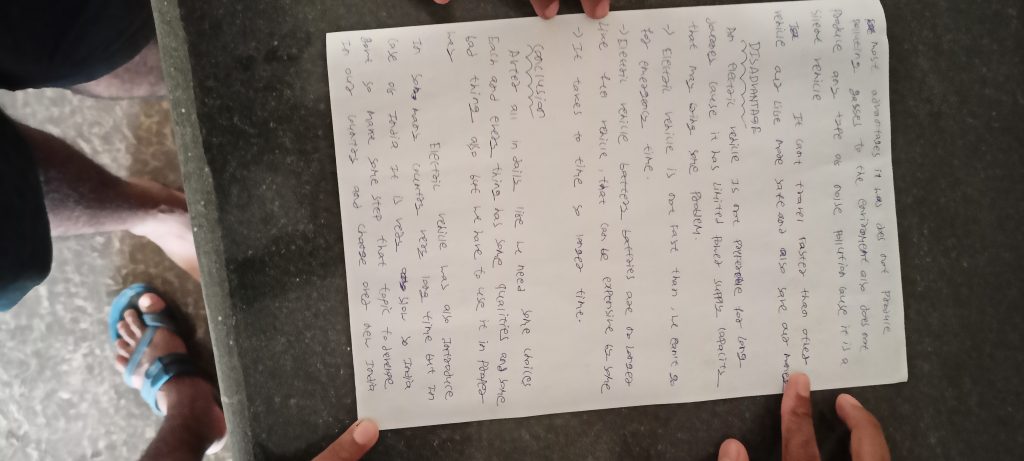 most advantages it has does not produce
polluting gasses to the enviroment also does not
produce any type of noise pollution cause it is a
silent vehicle
It cant travel faster than other
vehicle our live more safe and also save our money
DISADVANTAGE
An electric vehicle is not preferable for long
journeys cause it has limited power supply capacity
that may bring some problem.
→ Electric vehicle is not fast than, we cant go
for emergency time.
→ Electric vehicle battery batteries are no longer
live to vehicle, that can be expensive by some
→ It takes to time so longer time.
CONCLUSION
After all in daily live we need some choices
Each and every thing has some qualities and some
bad thing also but we have to use it in proper
way
Electric vehicle was also introduce
In so many countries very long time but in
case of India it is very slow so India
govt so make some step that topic to develope
in our country and change over new India